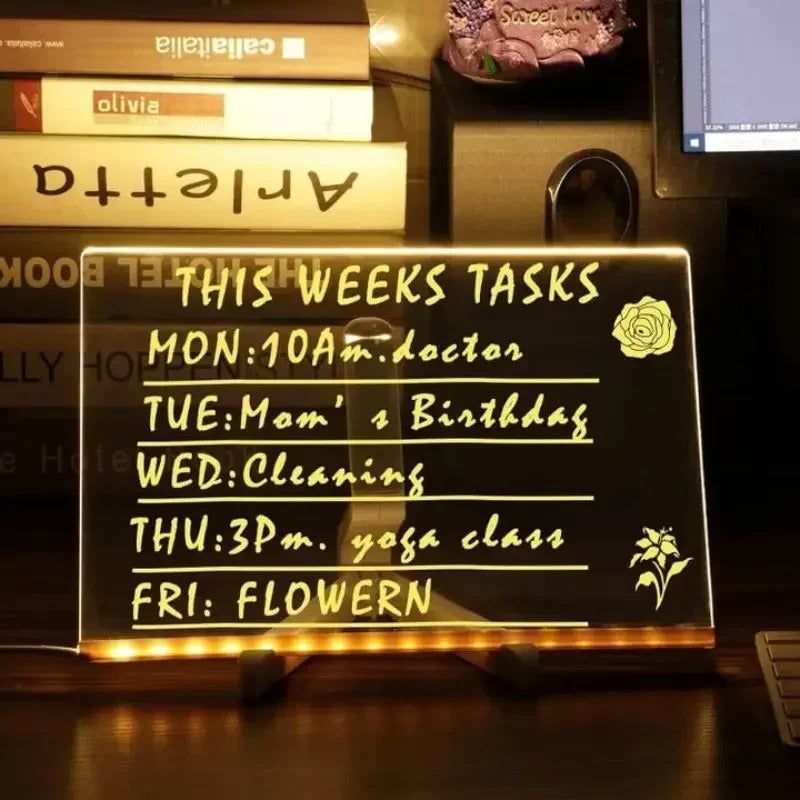 caliaitalia
olivia
Arletta
Sweet Love
THE HOTEL BOOK
THIS WEEKS TASKS
MON:10Am.doctor
TUE:Mom's Birthday
WED:Cleaning
THU:3Pm. yoga class
FRI: FLOWERN